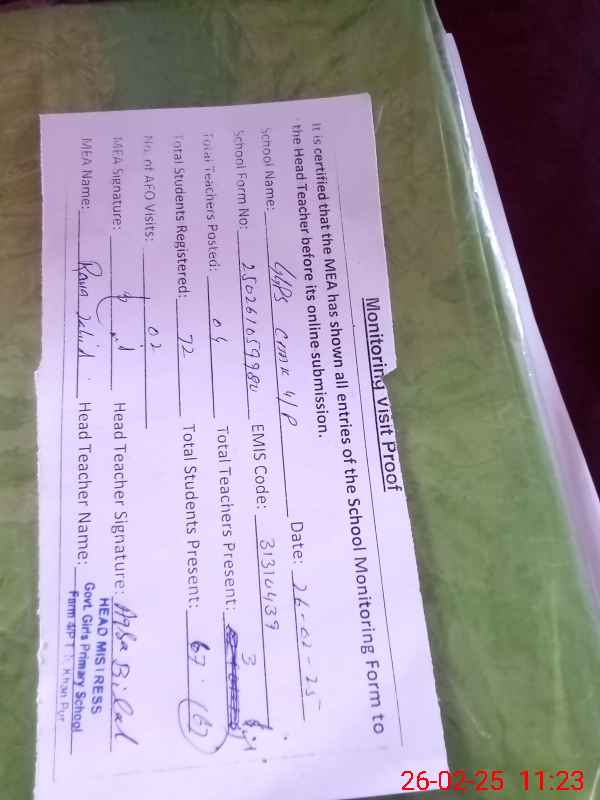 Monitoring Visit Proof
It is certified that the MEA has shown all entries of the School Monitoring Form to
the Head Teacher before its online submission.
School Name: GGPS 4/P Date: 26-02-25
School Form No: EMIS Code: 31310439
Total Teachers Posted: 04 Total Teachers Present: 3
Total Students Registered: 72 Total Students Present: 67 (67)
No. of AEO Visits: 02
MEA Signature: Head Teacher Signature: Aqsa Bilal
MEA Name: Head Teacher Name:
HEAD MISTRESS
Govt. Girls Primary School
Farm 4/P Khan Pur
26-02-25 11:23